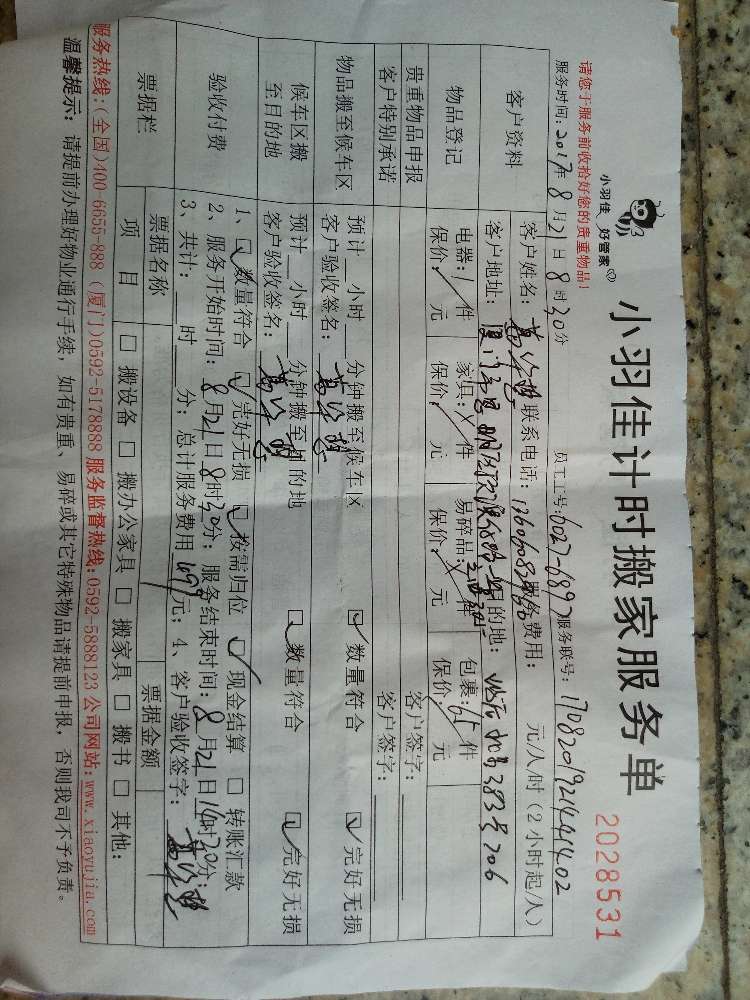 小羽佳 好管家
小羽佳计时搬家服务单
2028531
请您于服务前收拾好您的贵重物品!
服务时间: 2017年 8月 21日 8时 30分 员工工号: 服务联号: 1708201921441402
客户资料
客户姓名: 联系电话: 服务费用: 元/人/时 (2小时起/人)
客户地址: 目的地:
物品登记
电器: 1件 家具: 件 易碎品: 件 包裹: 件
保价: 元 保价: 元 保价: 元 保价: 元
贵重物品申报 客户签字:
客户特别承诺 客户签字:
物品搬至候车区
预计 小时 分钟搬至候车区 数量符合 完好无损
客户验收签名:
候车区搬至目的地
预计 小时 分钟搬至目的地 数量符合 完好无损
客户验收签名:
验收付费
1、数量符合 完好无损 按需归位 现金结算 转账汇款
2、服务开始时间: 8月21日 8时30分; 服务结束时间: 8月21日14时20分;
3、共计: 时 分; 总计服务费用 元; 4、客户验收签字:
票据栏
票据名称 票据金额
项目 搬设备 搬办公家具 搬家具 搬书 其他:
服务热线:(全国)400-6655-888 (厦门)0592-5178888 服务监督热线:0592-5888123 公司网站:www.xiaoyujia.com
温馨提示: 请提前办理好物业通行手续, 如有贵重、易碎或其它特殊物品请提前申报, 否则我司不予负责。